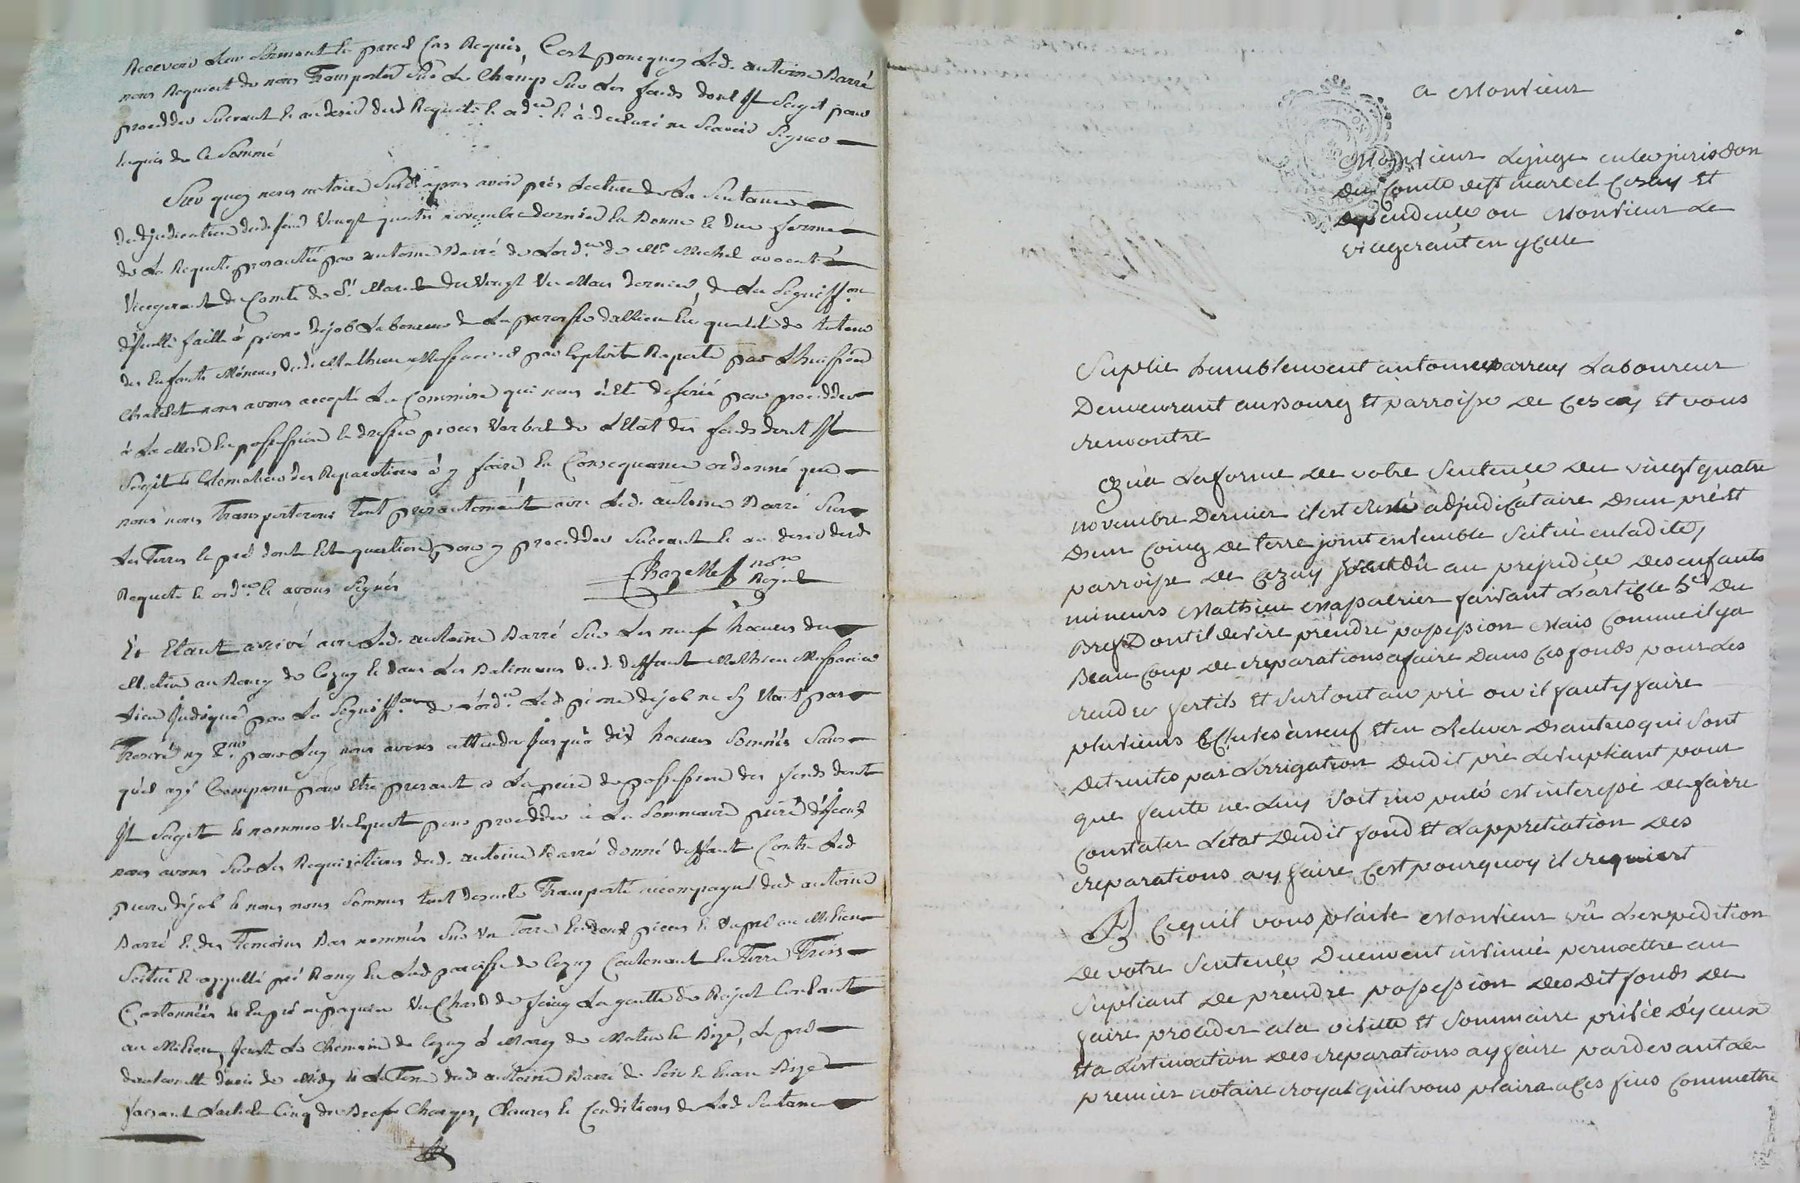 Recevoir leur serment en pareil cas Requis, C'est pourquoy led. antoine Barré
nous Requiert de nous Transporter sur Le Champ sur les fonds dont Il sagit pour
procedder suivant le au desir dud Requete le et à declaré ne scavoir signer
requis de ce sommé
Sur quoy nous notaire susd. apres avoir pris Lecture de La Sentance
dadjudication dud. fond Vingt quatre novembre dernier En Bonne et due forme
de La Requete presantée par antoine Barré de Lord.ce de Mr. Michel avocat
Vicegerant du Comté de St. Marcel du Vingt Un Mars dernier, de La Signiff.on
faitte à pierre dejob Laboureur de La paroisse dallieu En qualité de tuteur
des Enfants Mineurs dud. Mathieu Massacrier par Exploit Raporté par Lhuissier
Chatelet nous avons accepté La Commission qui nous à été deferée pour procedder
à La Mise En possession et dresser proces Verbal de L'Etat des fonds dont Il
Sagit et Estimation des Reparations à y faire En Consequance ordonné que
nous nous Transporterons Tout presantement avec Led. antoine Barré sur
Les Terres et pré dont Est question pour y procedder suivant le au desir dud
Requete et ord.ce et avons signés
Chazelle nore
Royal
Et Etant arrivé avec Led. antoine Barré sur Les neuf heures du
Matin au Bourg de Cezay et dans Les Batiments dud. deffunt Mathieu Massacrier
Lieu Indiqué par La Signiff.on de lord.ce Led pierre dejob ne sy Etant pas
Trouvé ny pour Luy nous avons attendu Jusqu'à dix heures sonnés sans
qu'il ayé Comparu pour Etre presant à La prise de possession des fonds dont
Il Sagit et nommer Un Expert pour procedder à La Sommaire prisée déjeux
nous avons sur Les Requisitions dud. antoine Barré donné deffaut Contre Led
pierre dejob et nous nous sommes tout desuite Transporté accompagné dud antoine
Barré et des Temoins Bas nommés sur Un Terre En deux pieces et Un pré au Milieu
Scitué et appellé pré Rony En Lad paroisse de Cezay Contenant En Terre Trois
Cartonnées et En pré a peupres Un Chard de foing La goutte de Rajat Coulant
au Milieu, Jouxte Le Chemin de Cezay à Marcy de Matin et Bize, Le pré
de Midy et La Terre dud antoine Barré de Soir et Encore Bize
faisant L'article Cinq du Bref Charges, Clauses et Conditions de Lad Sentance
a Monsieur
Monsieur Lejuge en la jurisdon
du Comté de st marcel Cezay et
dependence ou Monsieur Le
vicegerant en ycelle
Suplie humblement antoine parray Laboureur
Demeurant au Bourg et parroisse de Cezay et vous
remontre
Qu'a Laforme de votre Sentence du vingt quatre
novembre Dernier il est resté adjudicataire d'un pré et
d'un Coing de terre joint ensemble scitué en ladite
parroisse de Cezay vendu au prejudice des enfants
mineurs Mathieu Massacrier faisant L'article 5e Du
Bref Dont il desire prendre possession Mais Comme il y a
Beau Coup de reparations afaire Dans Ces fonds pour les
rendre fertils et surtout au pré ou il faut y faire
plusieurs Ecluses à neuf et en relever d'autres qui sont
Detruites par L'irrigation dudit pré Le supliant pour
que faute ne Luy soit imputé est interessé de faire
Constater L'etat dudit fond et L'appretiation Des
reparations ay faire C'est pourquoy il requiert
A Cequil vous plaise Monsieur vû L'expedition
De votre Sentence Duement intimée permettre au
Supliant de prendre possession Desdit fonds De
faire proceder ala visitte et sommaire prisée Déyceux
et a L'estimation Des reparations ay faire pardevant Le
premier notaire royal quil vous plaira a Ces fins Commettre